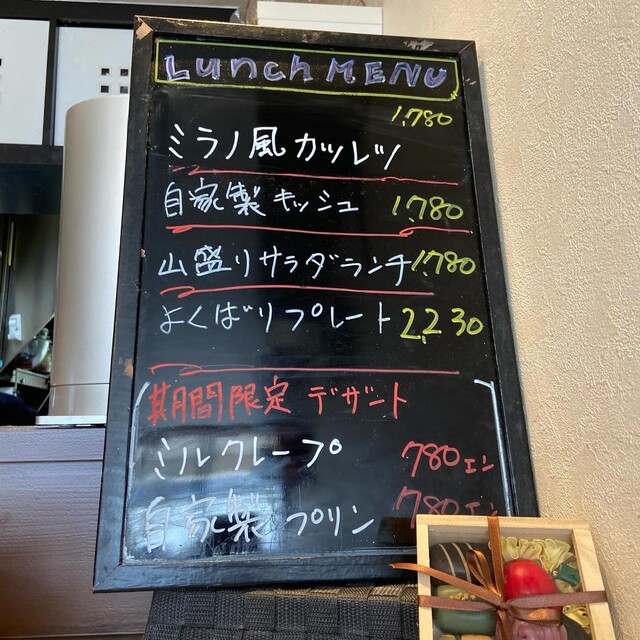 Lunch MENU
1,780
ミラノ風カツレツ
自家製キッシュ 1,780
山盛りサラダランチ 1,780
よくばりプレート 2,230
期間限定 デザート
ミルクレープ 780エン
自家製プリン 780エン